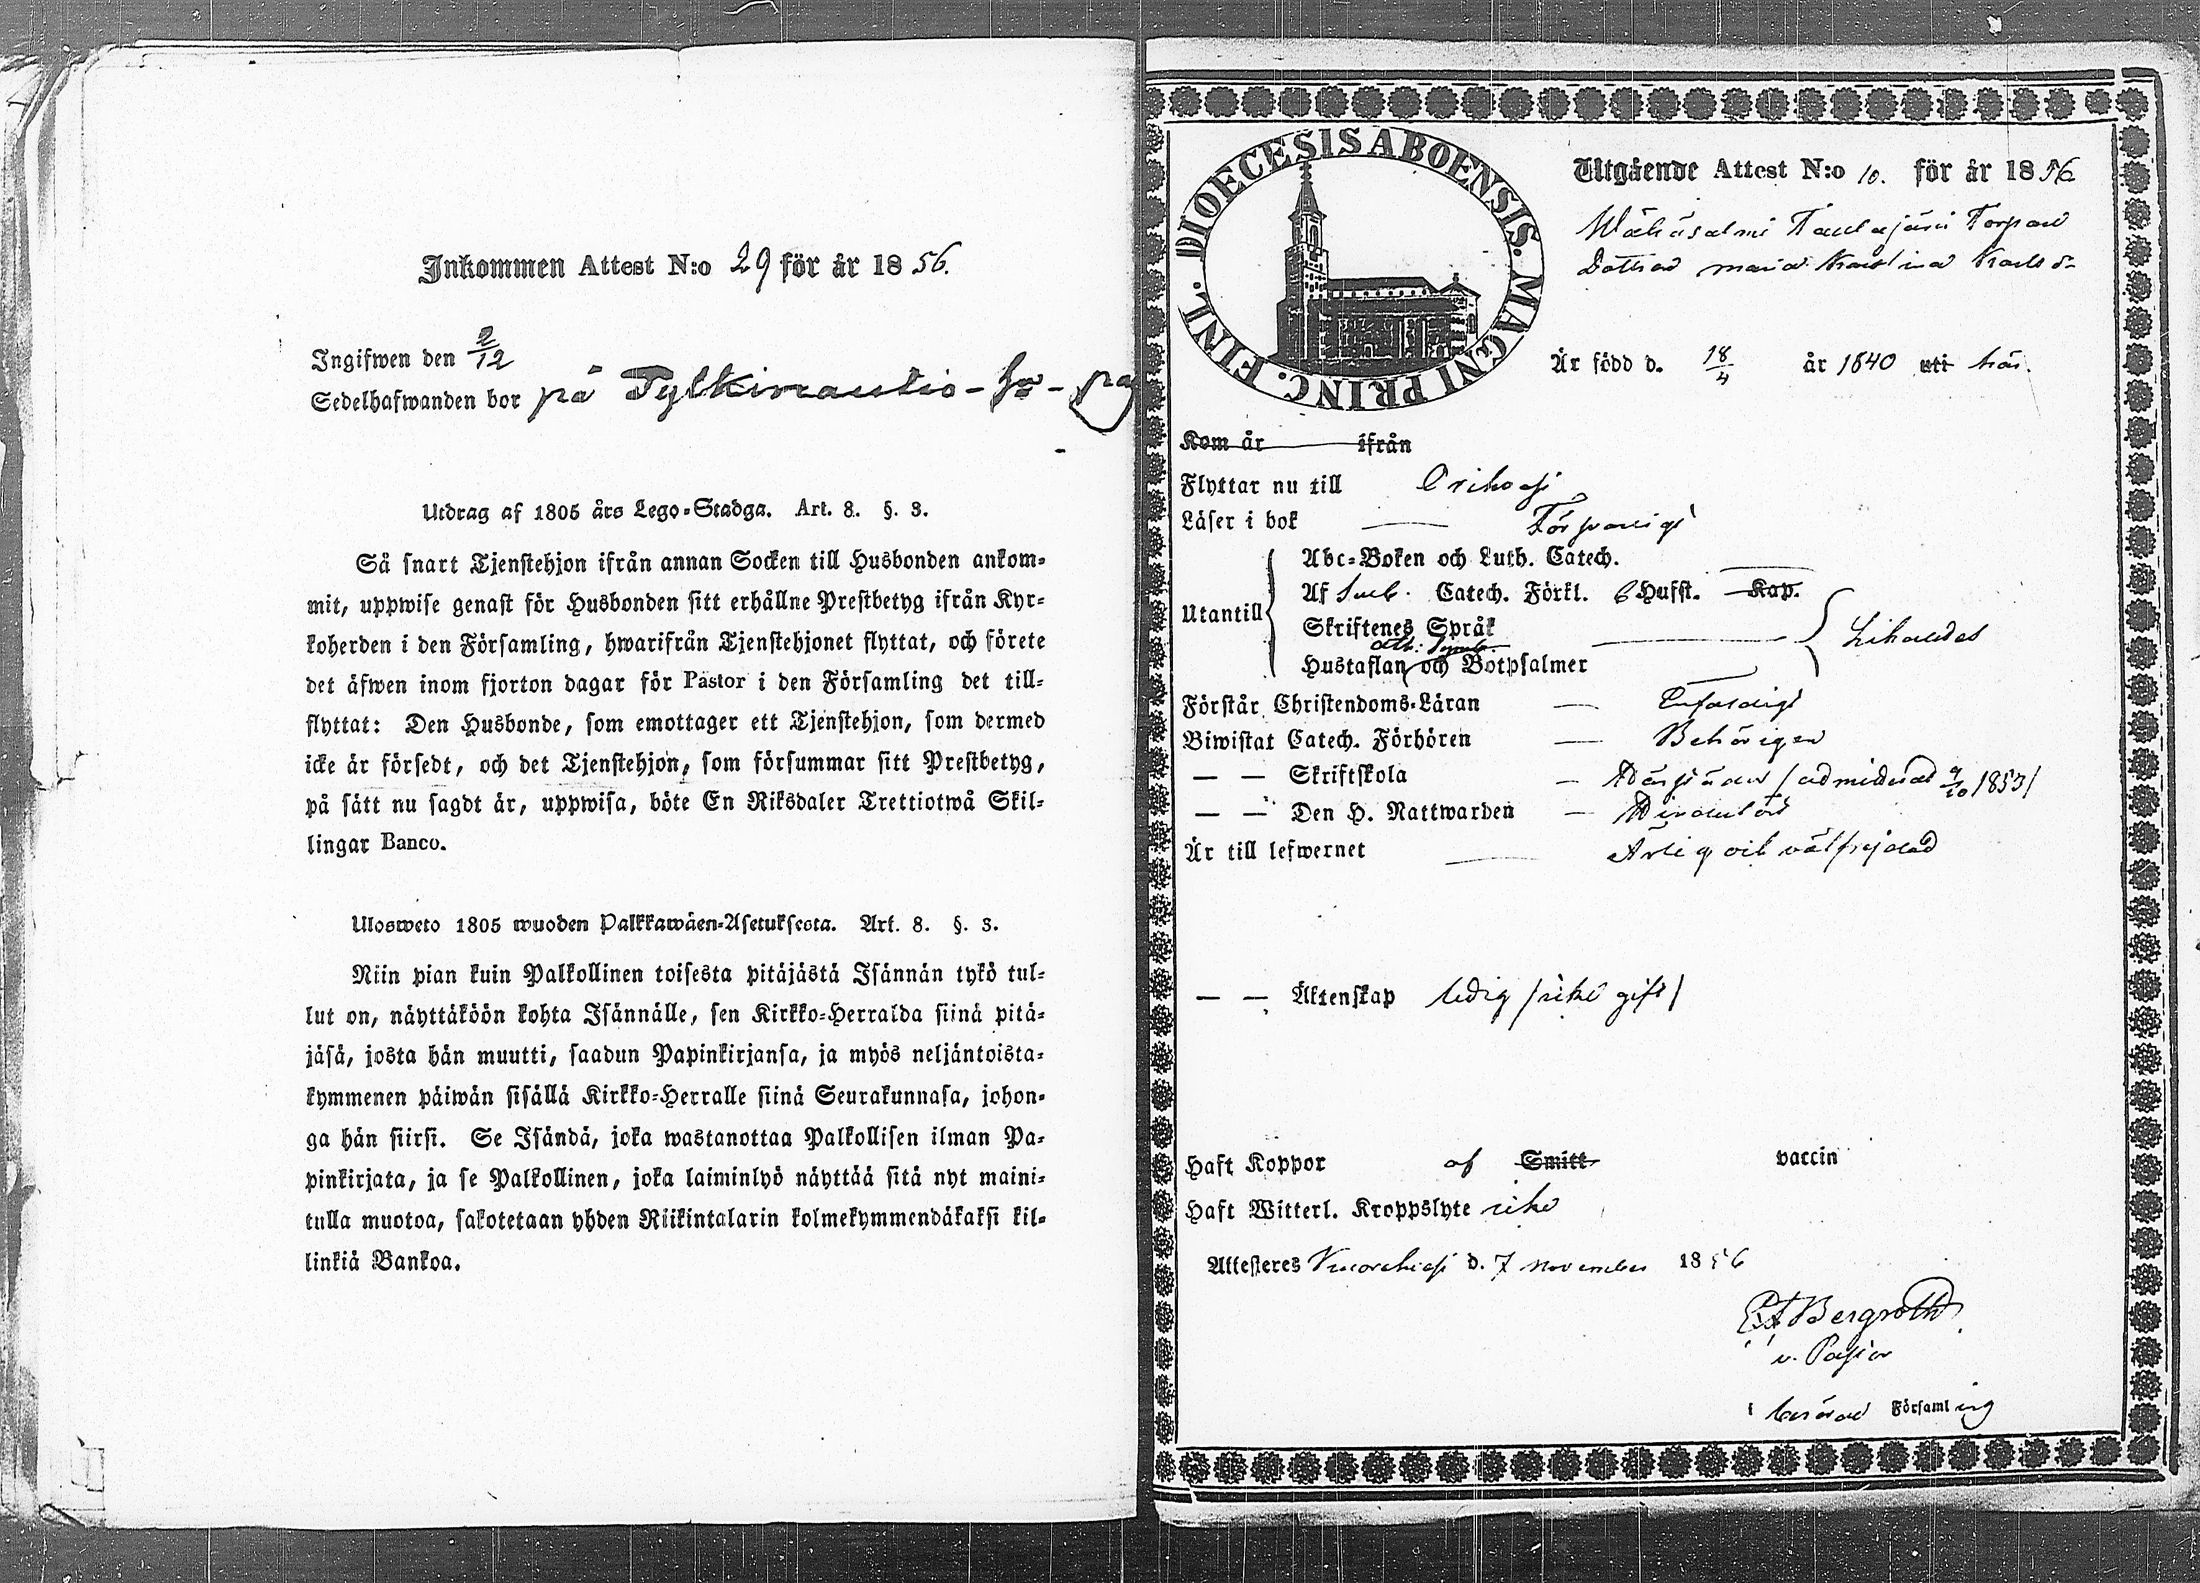 Inkommen Attest N:o 29 för år 1856.
Ingifwen den 2/12
Sedelhafwanden bor på
Utdrag af 1805 års Lego-Stadga. Art. 8. §. 3.
Så snart Tjenstehjon ifrån annan Socken till Husbonden ankom-
mit, uppwise genast för Husbonden sitt erhållne Prestbetyg ifrån Kyr-
koherden i den Församling, hwarifrån Tjenstehjonet flyttat, och förete
det äfwen inom fjorton dagar för Pastor i den Församling det till-
flyttat: Den Husbonde, som emottager ett Tjenstehjon, som dermed
icke är försedt, och det Tjenstehjon, som försummar sitt Prestbetyg,
på sätt nu sagdt är, uppwisa, böte En Riksdaler Trettiotwå Skil-
lingar Banco.
Ulosweto 1805 wuoden Palkkawäen-Asetuksesta. Art. 8. §. 3.
Niin pian kuin Palkollinen toisesta pitäjästä Isännän tykö tul-
lut on, näyttäköön kohta Isännälle, sen Kirkko-Herralda siinä pitä-
jäsä, josta hän muutti, saadun Papinkirjansa, ja myös neljäntoista-
kymmenen päiwän sisällä Kirkko-Herralle siinä Seurakunnasa, johon-
ga hän siirsi. Se Isändä, joka wastanottaa Palkollisen ilman Pa-
pinkirjata, ja se Palkollinen, joka laiminlyö näyttää sitä nyt maini-
tulla muotoa, sakotetaan yhden Riikintalarin kolmekymmendäkaksi kil-
linkiä Bankoa.
DIOECESIS ABOENSIS. MAGNI PRINC. FINL.
Utgående Attest N:o 10. för år 1856
Wähäsalmi Torpare
Dottren Maria
Är född d. 18/4 år 1840 uti här.
Kom år ifrån
Flyttar nu till Orihvesi
Läser i bok Försvarligt
Utantill
Abc-Boken och Luth. Catech.
Af Catech. Förkl. 6 Hufst. Kap.
Skriftenes Språk
Ath: Symb.
Hustaflan och Botpsalmer
Likaledes
Förstår Christendoms-Läran — Enfaldigt
Biwistat Catech. Förhören — Behörigen
— — Skriftskola — admitterad 9/10 1853/
— — Den H. Nattwarden —
Är till lefwernet Ärlig och välfrejdad
— — Äktenskap ledig /icke gift/
Haft Koppor af Smitt vaccin
Haft Witterl. Kroppslyte icke
Attesteres Kuorehvesi d. 7 november 1856
Bergroth
v. Pastor
i Församling